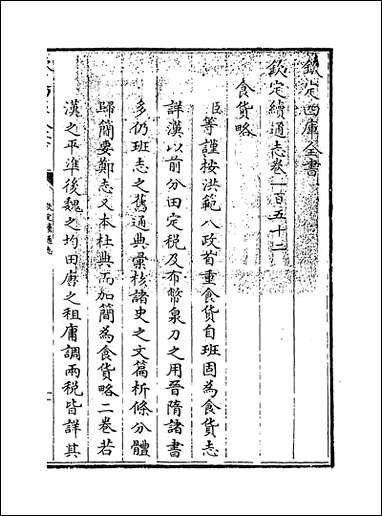 欽定四庫全書
欽定續通志卷一百五十二
食貨略
臣等謹按洪範八政首重食貨自班固為食貨志
詳漢以前分田定税及布幣泉刀之用晉隋諸書
多仍班志之舊通典彙核諸史之文篇析條分體
歸簡要鄭志又本杜典而加簡為食貨略二卷若
漢之平準後魏之均田唐之租庸調兩税皆詳其